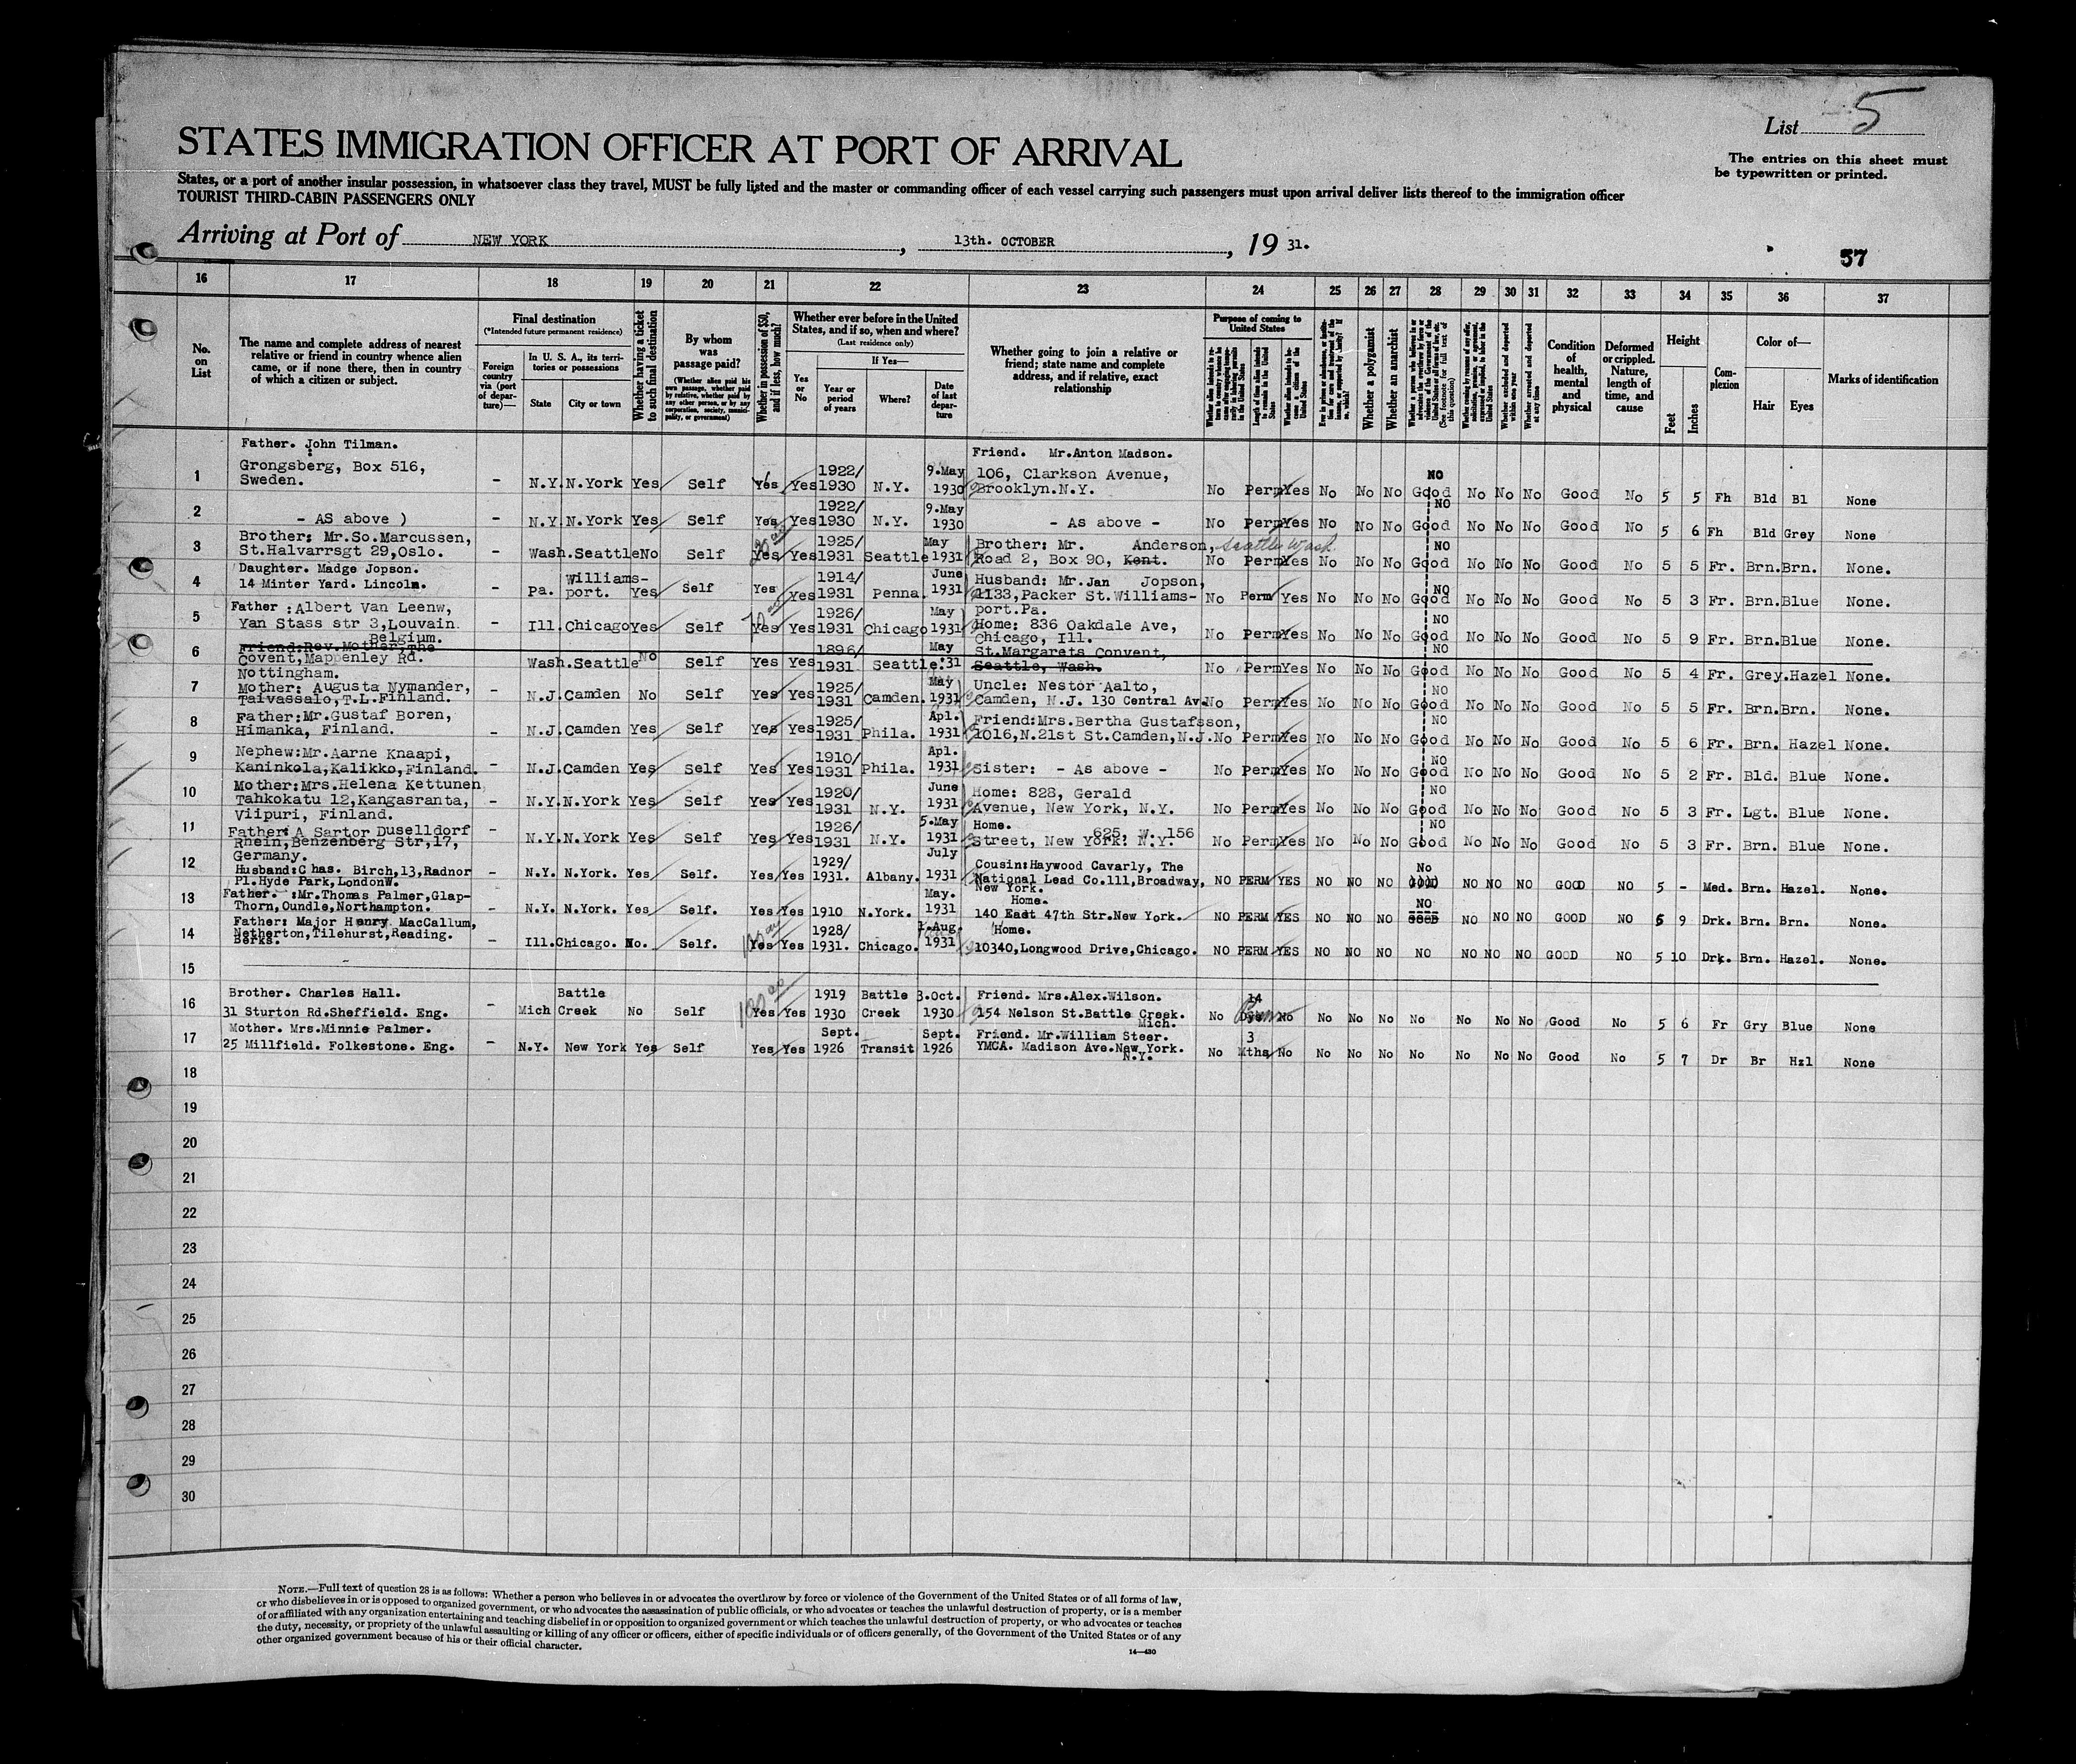 List 5
STATES IMMIGRATION OFFICER AT PORT OF ARRIVAL
The entries on this sheet must
be typewritten or printed.
States, or a port of another insular possession, in whatsoever class they travel, MUST be fully listed and the master or commanding officer of each vessel carrying such passengers must upon arrival deliver lists thereof to the immigration officer
TOURIST THIRD-CABIN PASSENGERS ONLY
Arriving at Port of NEW YORK, 13th. OCTOBER, 19 31.
37
16 17 18 19 20 21 22 23 24 25 26 27 28 29 30 31 32 33 34 35 36 37
No. on List
The name and complete address of nearest relative or friend in country whence alien came, or if none there, then in country of which a citizen or subject.
Final destination
(*Intended future permanent residence)
Foreign country via (port of departure)—
In U. S. A., its territories or possessions
State
City or town
Whether having a ticket to such final destination
By whom was passage paid?
(Whether alien paid his own passage, whether paid by relative, whether paid by any other person, or by any corporation, society, municipality, or government)
Whether in possession of $50, and if less, how much?
Whether ever before in the United States, and if so, when and where?
(Last residence only)
Yes or No
If Yes—
Year or period of years
Where?
Date of last departure
Whether going to join a relative or friend; state name and complete address, and if relative, exact relationship
Purpose of coming to United States
Length of time alien intends to remain in the United States
Whether alien intends to become a citizen of the United States
Whether a polygamist
Whether an anarchist
Whether excluded and deported within one year
Whether arrested and deported at any time
Condition of health, mental and physical
Deformed or crippled. Nature, length of time, and cause
Height
Feet
Inches
Complexion
Color of—
Hair
Eyes
Marks of identification
Father. John Tilman. Friend. Mr.Anton Madson.
1 Grongsberg, Box 516, 1922/ 9.May 106, Clarkson Avenue, NO
Sweden. - N.Y. N.York Yes Self Yes Yes 1930 N.Y. 1930 Brooklyn.N.Y. No Perm Yes No No No Good No No No Good No 5 5 Fh Bld Bl None
2 1922/ 9.May NO
- AS above ) - N.Y. N.York Yes Self Yes Yes 1930 N.Y. 1930 - As above - No Perm Yes No No No Good No No No Good No 5 6 Fh Bld Grey None
3 Brother: Mr.So.Marcussen, 1925/ May Brother: Mr. Anderson, Seattle Wash NO
St.Halvarrsgt 29,Oslo. - Wash. Seattle No Self Yes Yes 1931 Seattle 1931 Road 2, Box 90, Kent. No Perm Yes No No No Good No No No Good No 5 5 Fr. Brn. Brn. None.
4 Daughter. Madge Jopson. Williams- 1914/ June Husband: Mr.Jan Jopson, NO
14 Minter Yard. Lincoln. - Pa. port. Yes Self Yes Yes 1931 Penna. 1931 1133,Packer St.Williams- No Perm Yes No No No Good No No No Good No 5 3 Fr. Brn. Blue None.
port.Pa.
5 Father :Albert Van Leenw, 1926/ May Home: 836 Oakdale Ave, NO
Van Stass str 3,Louvain - Ill. Chicago Yes Self Yes Yes 1931 Chicago 1931 Chicago, Ill. No Perm Yes No No No Good No No No Good No 5 9 Fr. Brn. Blue None.
Belgium.
6 Friend:Rev.Mother,The 1896/ May St.Margarets Convent, NO
Covent,Mappenley Rd. Wash. Seattle No Self Yes Yes 1931 Seattle. '31 Seattle, Wash. No Perm Yes No No No Good No No No Good No 5 4 Fr. Grey. Hazel None.
Nottingham.
7 Mother: Augusta Nymander, 1925/ May Uncle: Nestor Aalto, NO
Taivassalo,T.L.Finland. - N.J. Camden No Self Yes Yes 1931 Camden. 1931 Camden, N.J. 130 Central Av. No Perm Yes No No No Good No No No Good No 5 5 Fr. Brn. Brn. None.
8 Father:Mr.Gustaf Boren, 1925/ Apl. Friend:Mrs.Bertha Gustafsson, NO
Himanka, Finland. - N.J. Camden Yes Self Yes Yes 1931 Phila. 1931 1016,N.21st St.Camden,N.J. No Perm Yes No No No Good No No No Good No 5 6 Fr. Brn. Hazel None.
9 Nephew:Mr.Aarne Knaapi, 1910/ Apl. NO
Kaninkola,Kalikko,Finland. - N.J. Camden Yes Self Yes Yes 1931 Phila. 1931 Sister: - As above - No Perm Yes No No No Good No No No Good No 5 2 Fr. Bld. Blue None.
10 Mother:Mrs.Helena Kettunen 1920/ June Home: 828, Gerald NO
Tahkokatu 12,Kangasranta, - N.Y. N.York Yes Self Yes Yes 1931 N.Y. 1931 Avenue, New York, N.Y. No Perm Yes No No No Good No No No Good No 5 3 Fr. Lgt. Blue None.
Viipuri, Finland.
11 Father: A Sartor Duselldorf 1926/ 5.May Home. 625, W. 156 NO
Rhein,Benzenberg Str,17, - N.Y. N.York Yes Self Yes Yes 1931 N.Y. 1931 Street, New York. N.Y. No Perm Yes No No No Good No No No Good No 5 3 Fr. Brn. Blue None.
Germany.
12 Husband:Chas. Birch,13,Radnor 1929/ July Cousin:Haywood Cavarly, The No
Pl.Hyde Park,LondonW. - N.Y. N.York. Yes Self. Yes Yes 1931. Albany. 1931 National Lead Co.111,Broadway, NO PERM YES NO NO NO GOOD NO NO NO GOOD NO 5 - Med. Brn. Hazel. None.
New York.
13 Father. :Mr.Thomas Palmer,Glap- May. Home. NO
Thorn,Oundle,Northampton. - N.Y. N.York. Yes Self. Yes Yes 1910 N.York. 1931 140 East 47th Str.New York. NO PERM YES NO NO NO GOOD NO NO NO GOOD NO 5 9 Drk. Brn. Brn. None.
14 Father: Major Henry MacCallum, 1928/ 1.Aug. Home.
Netherton,Tilehurst,Reading. - Ill. Chicago. No. Self. Yes Yes 1931. Chicago. 1931 10340,Longwood Drive,Chicago. NO PERM YES NO NO NO NO NO NO NO GOOD NO 5 10 Drk. Brn. Hazel. None.
Berks.
15
16 Brother. Charles Hall. Battle 1919 Battle 3.Oct. Friend. Mrs.Alex.Wilson. 14
31 Sturton Rd.Sheffield. Eng. - Mich Creek No Self Yes Yes 1930 Creek 1930 154 Nelson St.Battle Creek. No Perm No No No No No No No No Good No 5 6 Fr Gry Blue None
Mich.
17 Mother. Mrs.Minnie Palmer. Sept. Sept. Friend. Mr.William Steer. 3
25 Millfield. Folkestone. Eng. - N.Y. New York Yes Self Yes Yes 1926 Transit 1926 YMCA. Madison Ave.New York. No Mths No No No No No No No No Good No 5 7 Dr Br Hzl None
N.Y.
18
19
20
21
22
23
24
25
26
27
28
29
30
NOTE.—Full text of question 28 is as follows: Whether a person who believes in or advocates the overthrow by force or violence of the Government of the United States or of all forms of law,
or who disbelieves in or is opposed to organized government, or who advocates the assassination of public officials, or who advocates or teaches the unlawful destruction of property, or is a member
of or affiliated with any organization entertaining and teaching disbelief in or opposition to organized government or which teaches the unlawful destruction of property, or who advocates or teaches
the duty, necessity, or propriety of the unlawful assaulting or killing of any officer or officers, either of specific individuals or of officers generally, of the Government of the United States or of any
other organized government because of his or their official character.
14—430